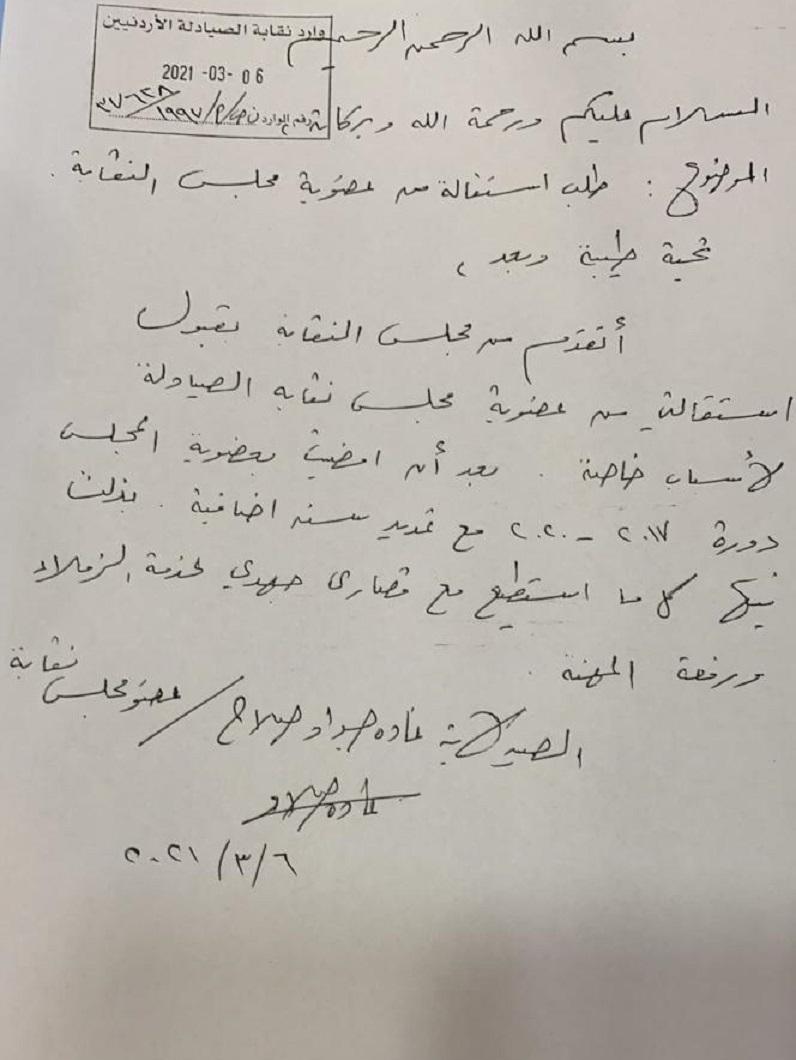 وارد نقابة الصيادلة الأردنيين
2021 -03- 06
رقم الوارد ن ص/م/١٩٩٧/
بسم الله الرحمن الرحيم
السلام عليكم ورحمة الله وبركاته
الموضوع : طلب استقالة من عضوية مجلس النقابة .
تحية طيبة وبعد ،
أتقدم من مجلس النقابة بقبول
استقالتي من عضوية مجلس نقابة الصيادلة
لأسباب خاصة . بعد أن امضيت بعضوية المجلس
دورة ٢٠١٧ - ٢٠٢٠ مع تمديد سنه اضافية . بذلت
فيها كل ما استطيع مع قصارى جهدي لخدمة الزملاء
ورفعة المهنة .
الصيدلانية غاده صلاح / عضو مجلس نقابة
٢٠٢١/٣/٦